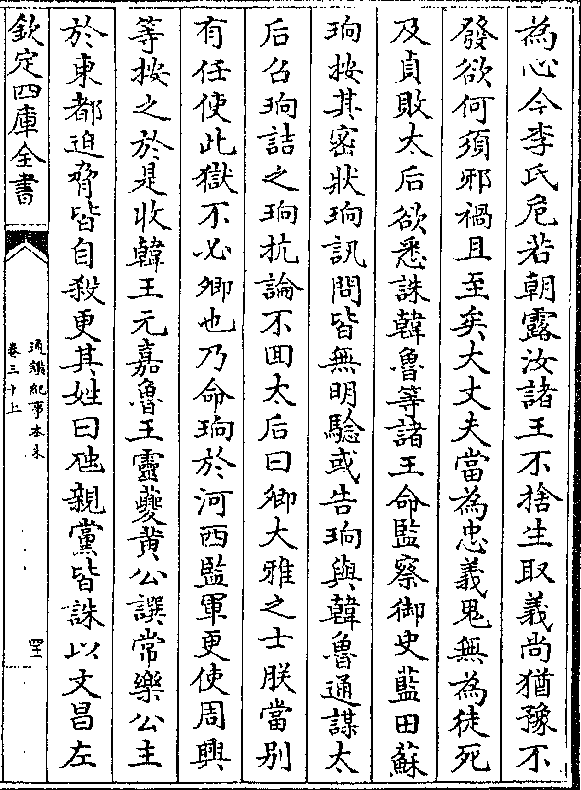 為心今李氏危若朝露汝諸王不捨生取義尚猶豫不
發欲何須邪禍且至矣大丈夫當為忠義鬼無為徒死
及貞敗太后欲悉誅韓魯等諸王命監察御史藍田蘇
珦按其密狀珦訊問皆無明驗或告珦與韓魯通謀太
后召珦詰之珦抗論不回太后曰卿大雅之士朕當别
有任使此獄不必卿也乃命珦於河西監軍更使周興
等按之於是收韓王元嘉魯王靈夔黄公譔常樂公主
於東都迫脅皆自殺更其姓曰虺親黨皆誅以文昌左
欽定四庫全書
通鑑紀事本末
卷三十上